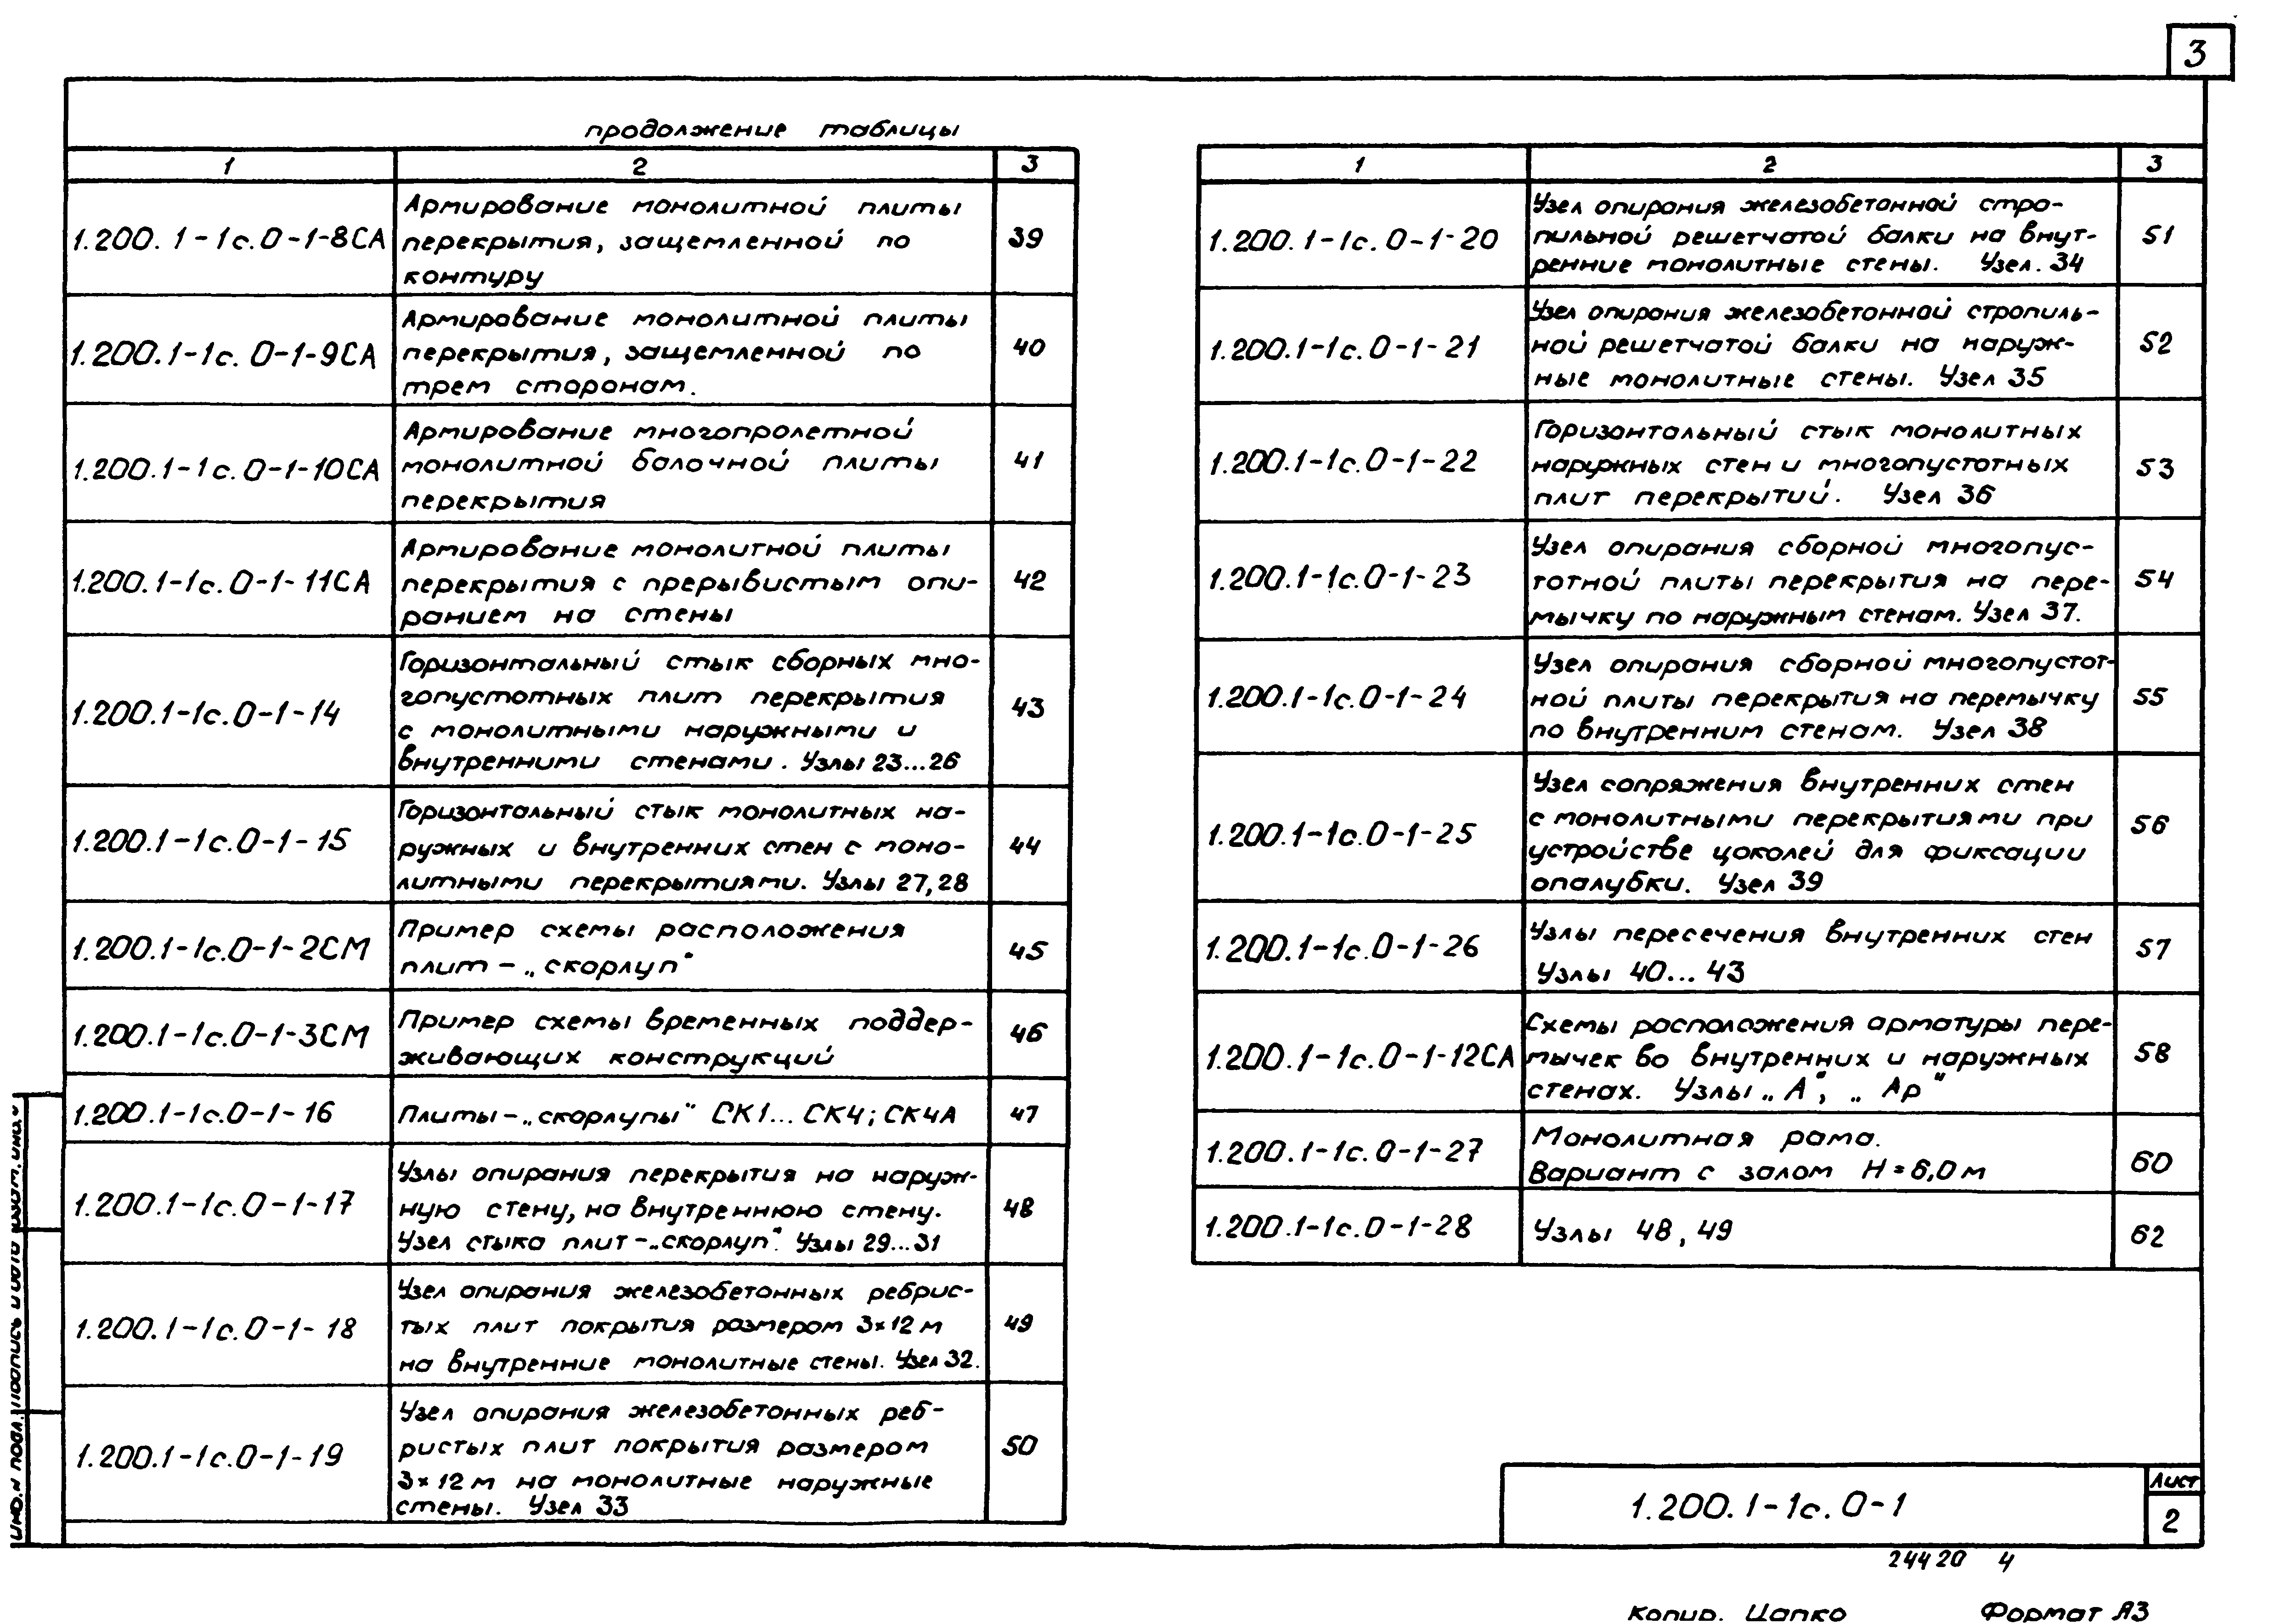 3
продолжение таблицы
1 2 3
1.200.1-1с.0-1-8СА
Армирование монолитной плиты
перекрытия, защемленной по
контуру
39
1.200.1-1с.0-1-9СА
Армирование монолитной плиты
перекрытия, защемленной по
трем сторонам.
40
1.200.1-1с.0-1-10СА
Армирование многопролетной
монолитной балочной плиты
перекрытия
41
1.200.1-1с.0-1-11СА
Армирование монолитной плиты
перекрытия с прерывистым опи-
ранием на стены
42
1.200.1-1с.0-1-14
Горизонтальный стык сборных мно-
гопустотных плит перекрытия
с монолитными наружными и
внутренними стенами. Узлы 23...26
43
1.200.1-1с.0-1-15
Горизонтальный стык монолитных на-
ружных и внутренних стен с моно-
литными перекрытиями. Узлы 27,28
44
1.200.1-1с.0-1-2СМ
Пример схемы расположения
плит-„скорлуп"
45
1.200.1-1с.0-1-3СМ
Пример схемы временных поддер-
живающих конструкций
46
1.200.1-1с.0-1-16
Плиты-„скорлупы" СК1...СК4; СК4А
47
1.200.1-1с.0-1-17
Узлы опирания перекрытия на наруж-
ную стену, на внутреннюю стену.
Узел стыка плит-„скорлуп". Узлы 29...31
48
1.200.1-1с.0-1-18
Узел опирания железобетонных ребрис-
тых плит покрытия размером 3×12 м
на внутренние монолитные стены. Узел 32.
49
1.200.1-1с.0-1-19
Узел опирания железобетонных реб-
ристых плит покрытия размером
3×12 м на монолитные наружные
стены. Узел 33
50
1 2 3
1.200.1-1с.0-1-20
Узел опирания железобетонной стро-
пильной решетчатой балки на внут-
ренние монолитные стены. Узел. 34
51
1.200.1-1с.0-1-21
Узел опирания железобетонной стропиль-
ной решетчатой балки на наруж-
ные монолитные стены. Узел 35
52
1.200.1-1с.0-1-22
Горизонтальный стык монолитных
наружных стен и многопустотных
плит перекрытий. Узел 36
53
1.200.1-1с.0-1-23
Узел опирания сборной многопус-
тотной плиты перекрытия на пере-
мычку по наружным стенам. Узел 37.
54
1.200.1-1с.0-1-24
Узел опирания сборной многопустот-
ной плиты перекрытия на перемычку
по внутренним стенам. Узел 38
55
1.200.1-1с.0-1-25
Узел сопряжения внутренних стен
с монолитными перекрытиями при
устройстве цоколей для фиксации
опалубки. Узел 39
56
1.200.1-1с.0-1-26
Узлы пересечения внутренних стен
Узлы 40...43
57
1.200.1-1с.0-1-12СА
Схемы расположения арматуры пере-
мычек во внутренних и наружных
стенах. Узлы „А", „Ар"
58
1.200.1-1с.0-1-27
Монолитная рама.
Вариант с залом Н=6,0 м
60
1.200.1-1с.0-1-28
Узлы 48, 49
62
1.200.1-1с.0-1
Лист
2
24420 4
Копир. Цапко Формат А3
Инв.N подл. Подпись и дата Взам.инв.